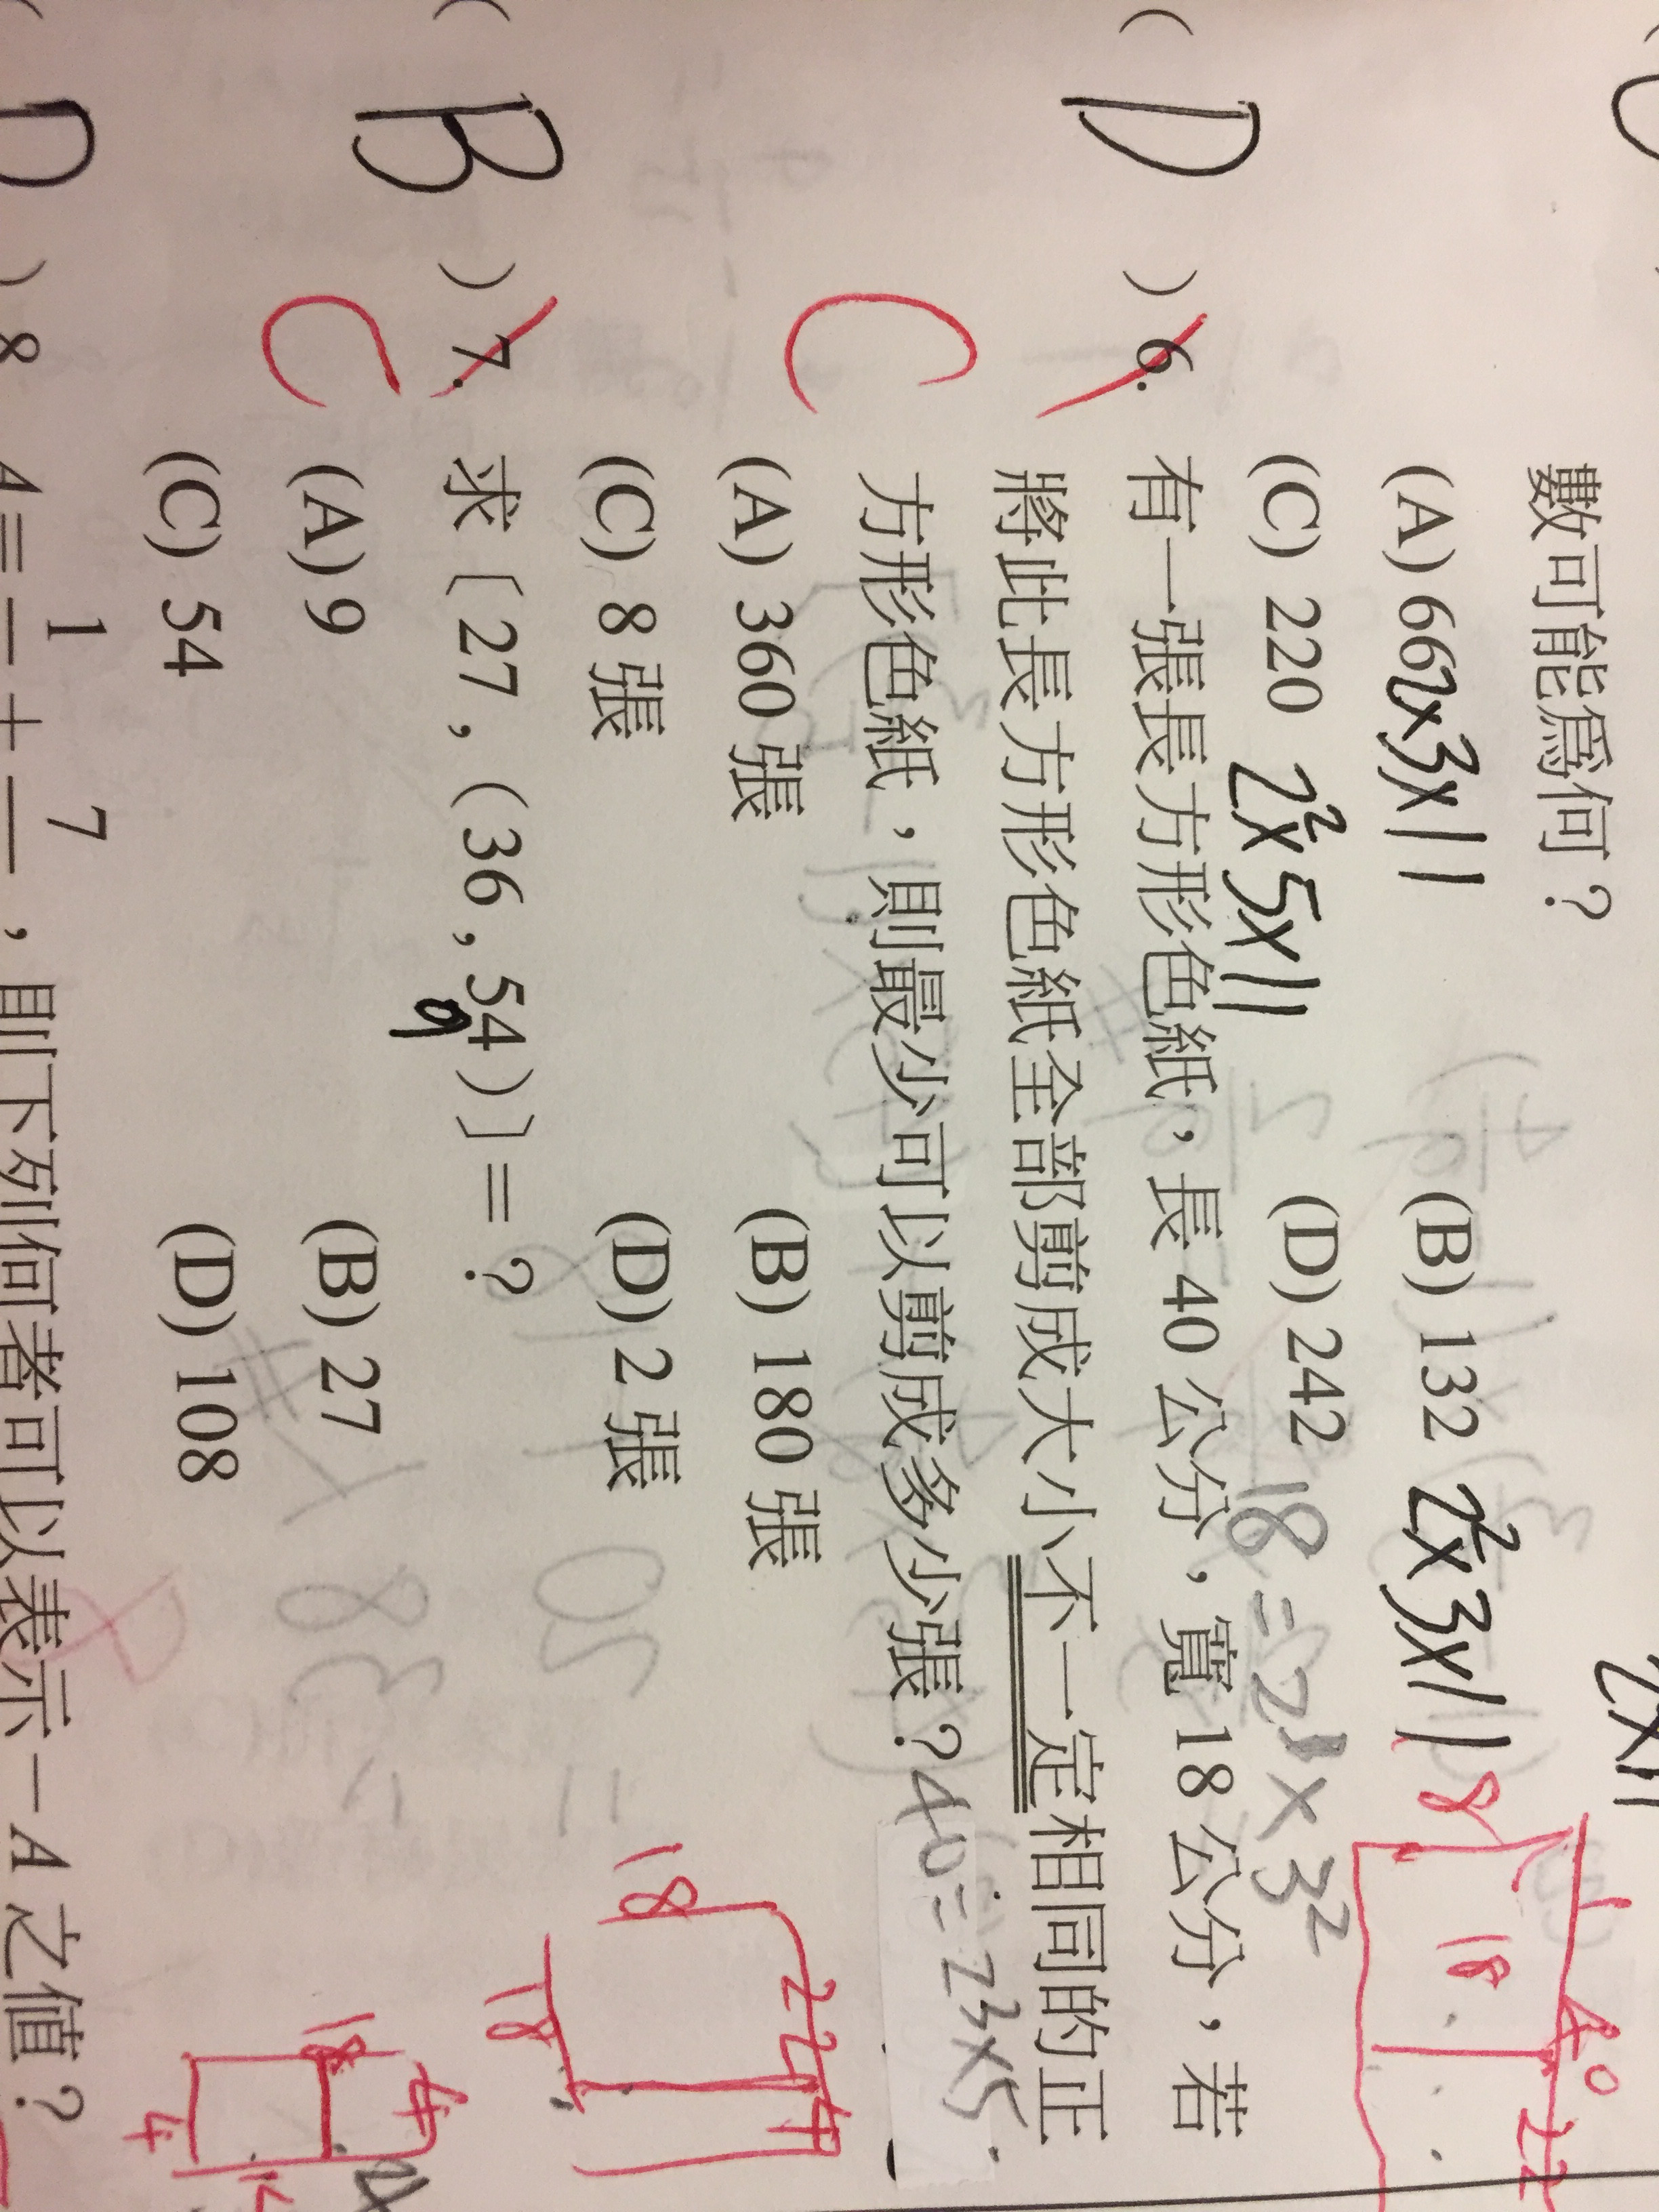 數可能為何？
(A) 66 2×3×11 (B) 132 2²×3×11
(C) 220 2²×5×11 (D) 242
2×11
( D ) 6. 有一張長方形色紙，長 40 公分，寬 18 公分，若
將此長方形色紙全部剪成大小不一定相同的正
方形色紙，則最少可以剪成多少張？
C
18=2¹×3²
40=2³×5
(A) 360 張 (B) 180 張
(C) 8 張 (D) 2 張
18
18
40
22
18
22
4
18
( B ) 7. 求〔27，(36，54)〕=？
9
C
(A) 9 (B) 27
(C) 54 (D) 108
18
4
4
( D ) 8 A=1 + 7 ，則下列何者可以表示－A 之值？